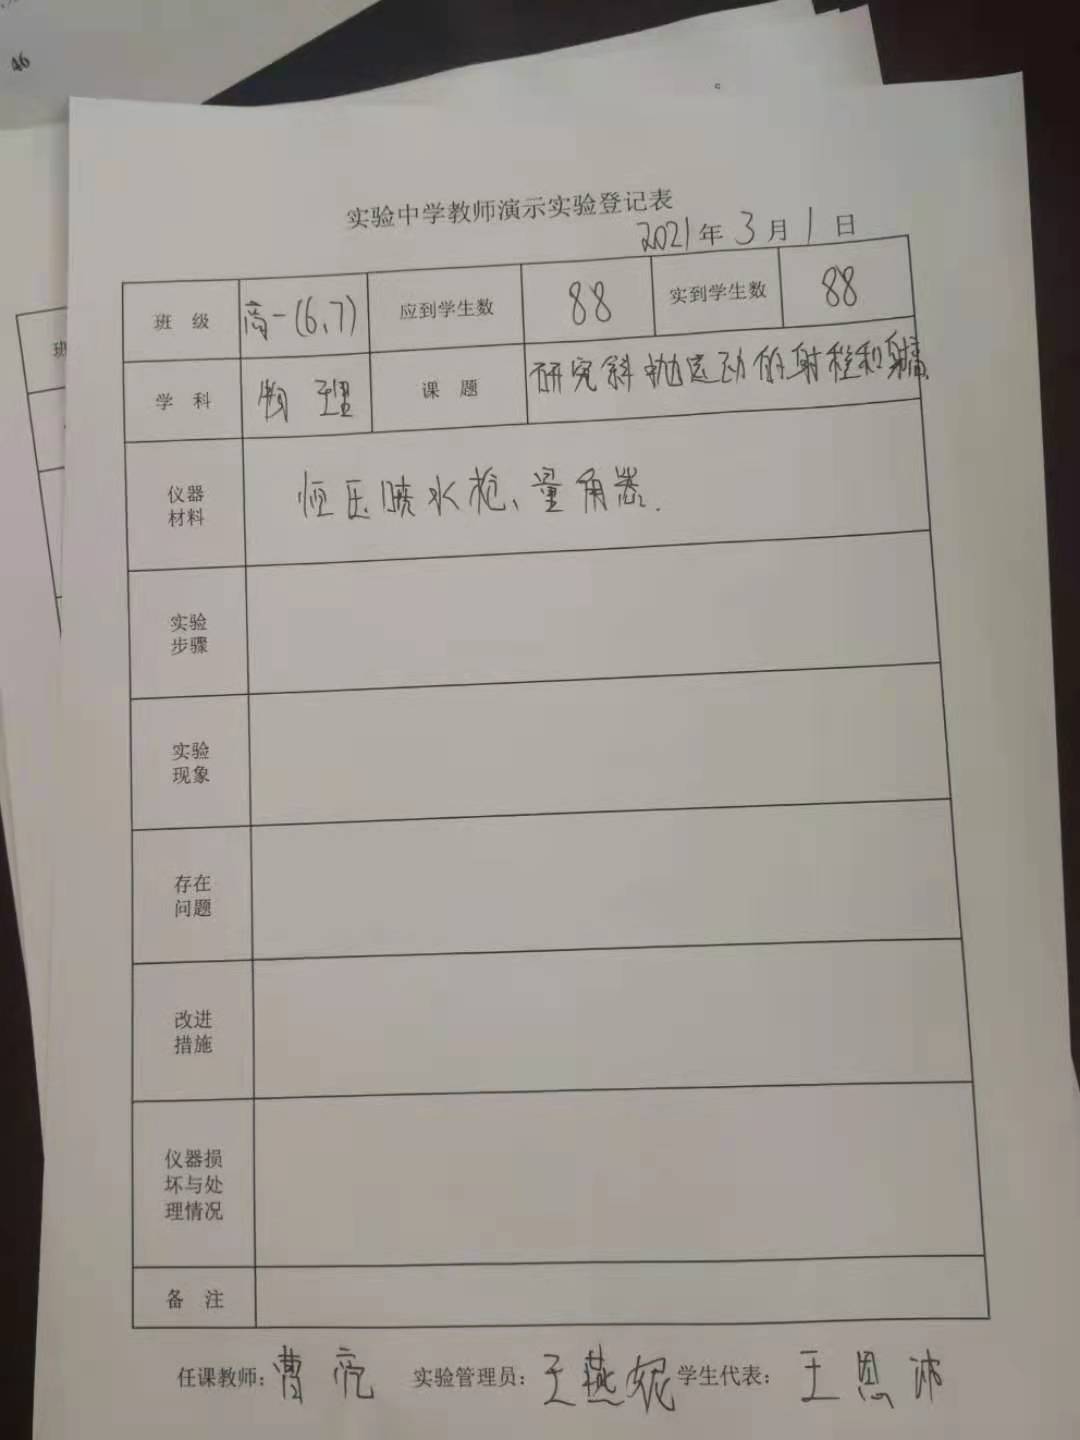 46
实验中学教师演示实验登记表
2021年3月1日
班 级 高一(6、7) 应到学生数 88 实到学生数 88
学 科 物理 课 题 研究斜抛运动的射程和射高
仪器
材料
恒压喷水枪、量角器.
实验
步骤
实验
现象
存在
问题
改进
措施
仪器损
坏与处
理情况
备 注
任课教师:曹亮 实验管理员:王燕妮 学生代表:王恩沛
班